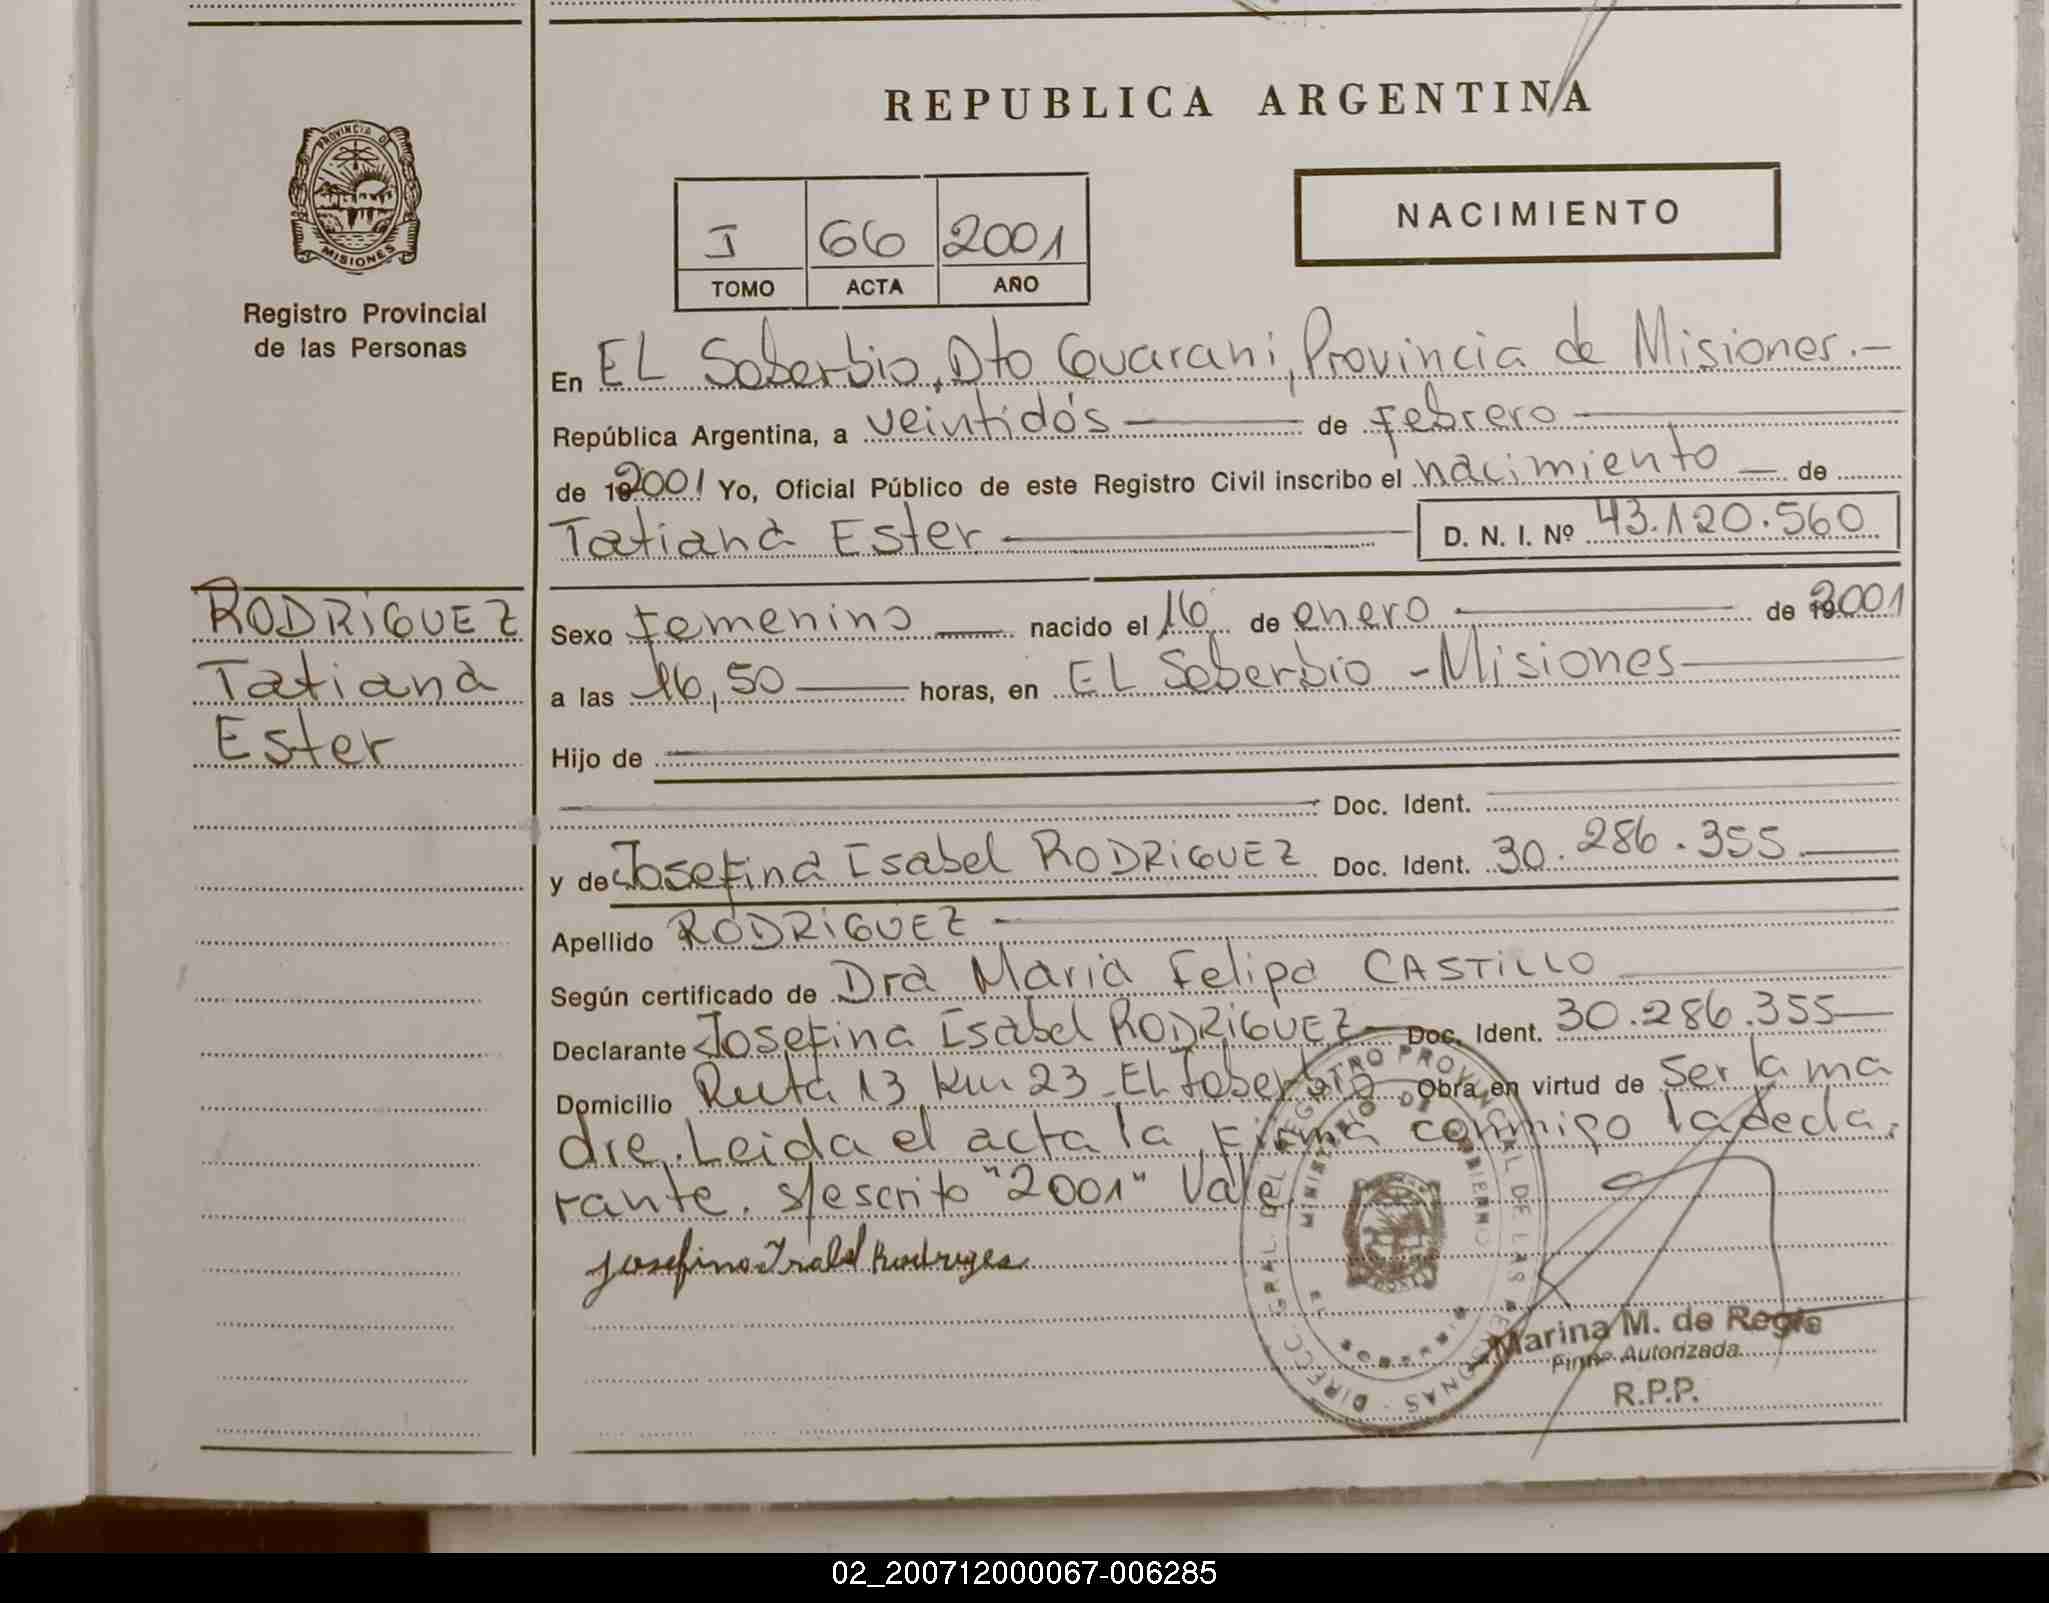 REPUBLICA ARGENTINA
PROVINCIA DE
MISIONES
Registro Provincial
de las Personas
I 66 2001
TOMO ACTA AÑO
NACIMIENTO
En EL Soberbio, Dto Guarani, Provincia de Misiones.-
República Argentina, a veintidós de febrero
de 2001 Yo, Oficial Público de este Registro Civil inscribo el nacimiento de
Tatiana Ester D. N. I. Nº 43.120.560
RODRIGUEZ
Tatiana
Ester
Sexo femenino nacido el 16 de enero de 2001
a las 16,50 horas, en EL Soberbio - Misiones
Hijo de
Doc. Ident.
y de Josefina Isabel RODRIGUEZ Doc. Ident. 30.286.355
Apellido RODRIGUEZ
Según certificado de Dra Maria Felipa CASTILLO
Declarante Josefina Isabel RODRIGUEZ Doc. Ident. 30.286.355
Domicilio Ruta 13 Km 23 - EL Soberbio Obra en virtud de ser la ma
dre. Leida el acta la firma conmigo la decla.
rante. s/escrito "2001" Vale
Josefina Isabel Rodriguez
DIRECC. GRAL. DEL REGISTRO PROVINCIAL DE LAS PERSONAS
MINISTERIO DE GOBIERNO
Marina M. de Regis
Firma Autorizada
R.P.P.
02_200712000067-006285